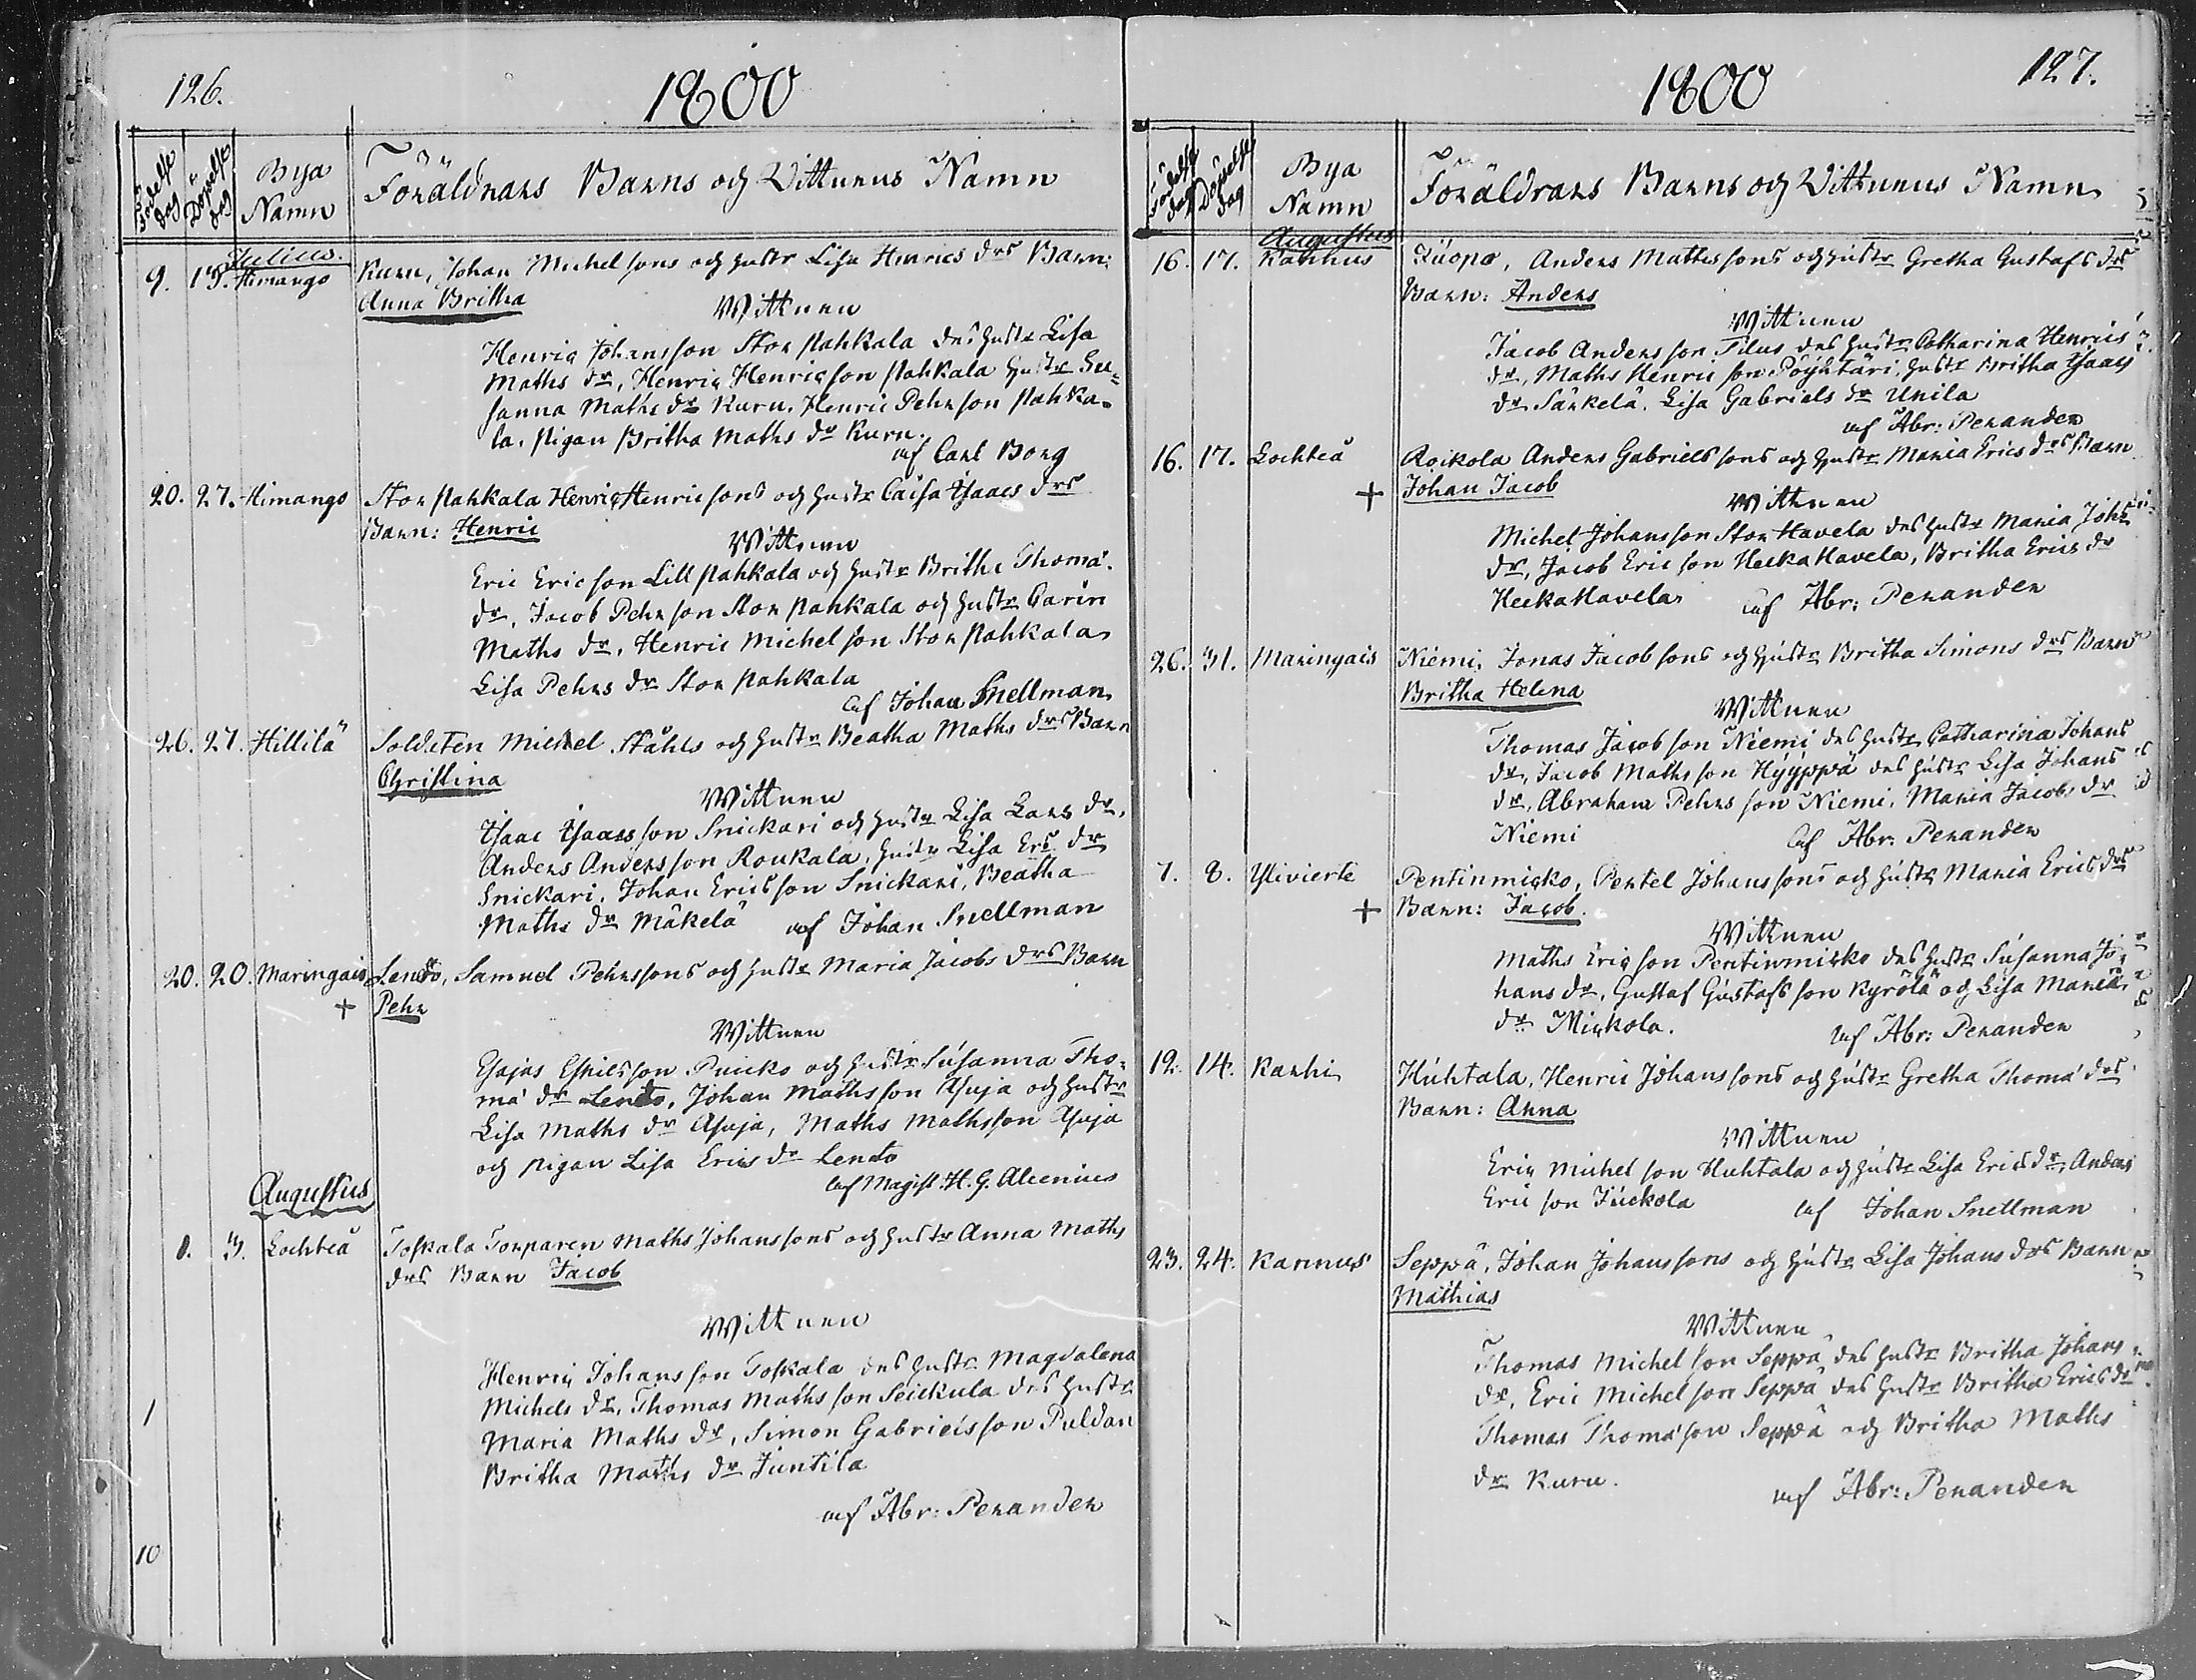 126.
1800
Födelse dag
Döpelse dag
Bya Namn
Föräldrars Barns och Vittnens Namn
Julius.
9. 13. Himango Kuru, Johan Michelsons och hustr Lisa Henrics drs Barn:
Anna Britha
Wittnen
Henric Johansson Stor Pahkala des hustr Lisa
Maths dr, Henric Henricson Pahkala hustr Su-
sanna Maths dr Kuru. Henric Pehrson Pahka-
la. Pigan Britha Maths dr Kuru.
af Carl Borg
20. 27. Himango Stor Pahkala Henric Henricsons och hustr Caisa Isaacs drs
Barn: Henric
Wittnen
Eric Ericson Lill Pahkala och hustr Britha Thomæ
dr, Jacob Pehrson Stor Pahkala och hustr Carin
Maths dr, Henric Michelson Stor Pahkala
Lisa Pehrs dr Stor Pahkala
af Johan Snellman
26. 27. Hillilä Soldaten Michel Ståhls och hustr Beatha Maths drs Barn
Christina
Wittnen
Isaac Isaacsson Snickari och hustr Lisa Lars dr,
Anders Andersson Roukala, hustr Lisa Ers dr
Snickari, Johan Ericsson Snickari, Beatha
Maths dr Mäkelä af Johan Snellman
20. 20. Maringais Lendo, Samuel Pehrssons och hustr Maria Jacobs drs Barn
+ Pehr
Wittnen
Esajas Eskilsson och hustr Susanna Tho-
mæ dr Lendo, Johan Mathsson Asuja och hustr
Lisa Maths dr Asuja, Maths Mathsson Asuja
och pigan Lisa Erics dr Lendo
af Magist. H. G. Alcenius
Augustus
3. Lochteå Toskala Torparen Maths Johanssons och hustr Anna Maths
drs Barn Jacob
Wittnen
Henric Johansson Toskala des hustr Magdalena
Michels dr, Thomas Mathsson des hustr
Maria Maths dr, Simon Gabrielsson Puldan
Britha Maths dr Juntila
af Abr: Perander
1
10
1800
127.
Födelse dag
Döpelse dag
Bya Namn
Föräldrars Barns och Vittnens Namn
Augustus
16. 17. Kannus Anders Mathssons och hustr Gretha Gustafs drs
Barn: Anders
Wittnen
Jacob Andersson Filus des hustr Catharina Henrics
dr, Maths Henricson Pöyhtäri, hustr Britha Isaacs
dr Särkelä. Lisa Gabriels dr Unila
af Abr: Perander
16. 17. Lochteå Roikola Anders Gabrielssons och hustr Maria Erics drs Barn
+ Johan Jacob
Wittnen
Michel Johansson Stor Havela des hustr Maria Johs
dr, Jacob Ericson Heika Havela, Britha Erics dr
Heika Havela af Abr: Perander
26. 31. Maringais Niemi, Jonas Jacobsons och hustr Britha Simons drs Barn
Britha Helena
Wittnen
Thomas Jacobson Niemi des hustr Catharina Johans
dr, Jacob Mathsson Hyyppä des hustr Lisa Johans
dr, Abraham Pehrsson Niemi, Maria Jacobs dr
Niemi af Abr. Perander
7. 8. Ylivierte Pentinmicko, Pertel Johanssons och hustr Maria Erics drs
+ Barn: Jacob.
Wittnen
Maths Ericson Pentinmicko des hustr Susanna Jo-
hans dr, Gustaf Gustafsson Kyrölä och Lisa
dr Mickola. af Abr: Perander
12. 14. Karhi Huhtala, Henric Johanssons och hustr Gretha Thomæ drs
Barn: Anna
Wittnen
Eric Michelson Huhtala och hustr Lisa Erics dr, Anders
Ericson Juckola af Johan Snellman
23. 24. Kannus Seppä, Johan Johanssons och hustr Lisa Johans drs Barn
Mathias
Wittnen
Thomas Michelson Seppä des hustr Britha Johans
dr, Eric Michelson Seppä des hustr Britha Erics dr
Thomas Thomæson Seppä och Britha Maths
dr Kuru. af Abr: Perander